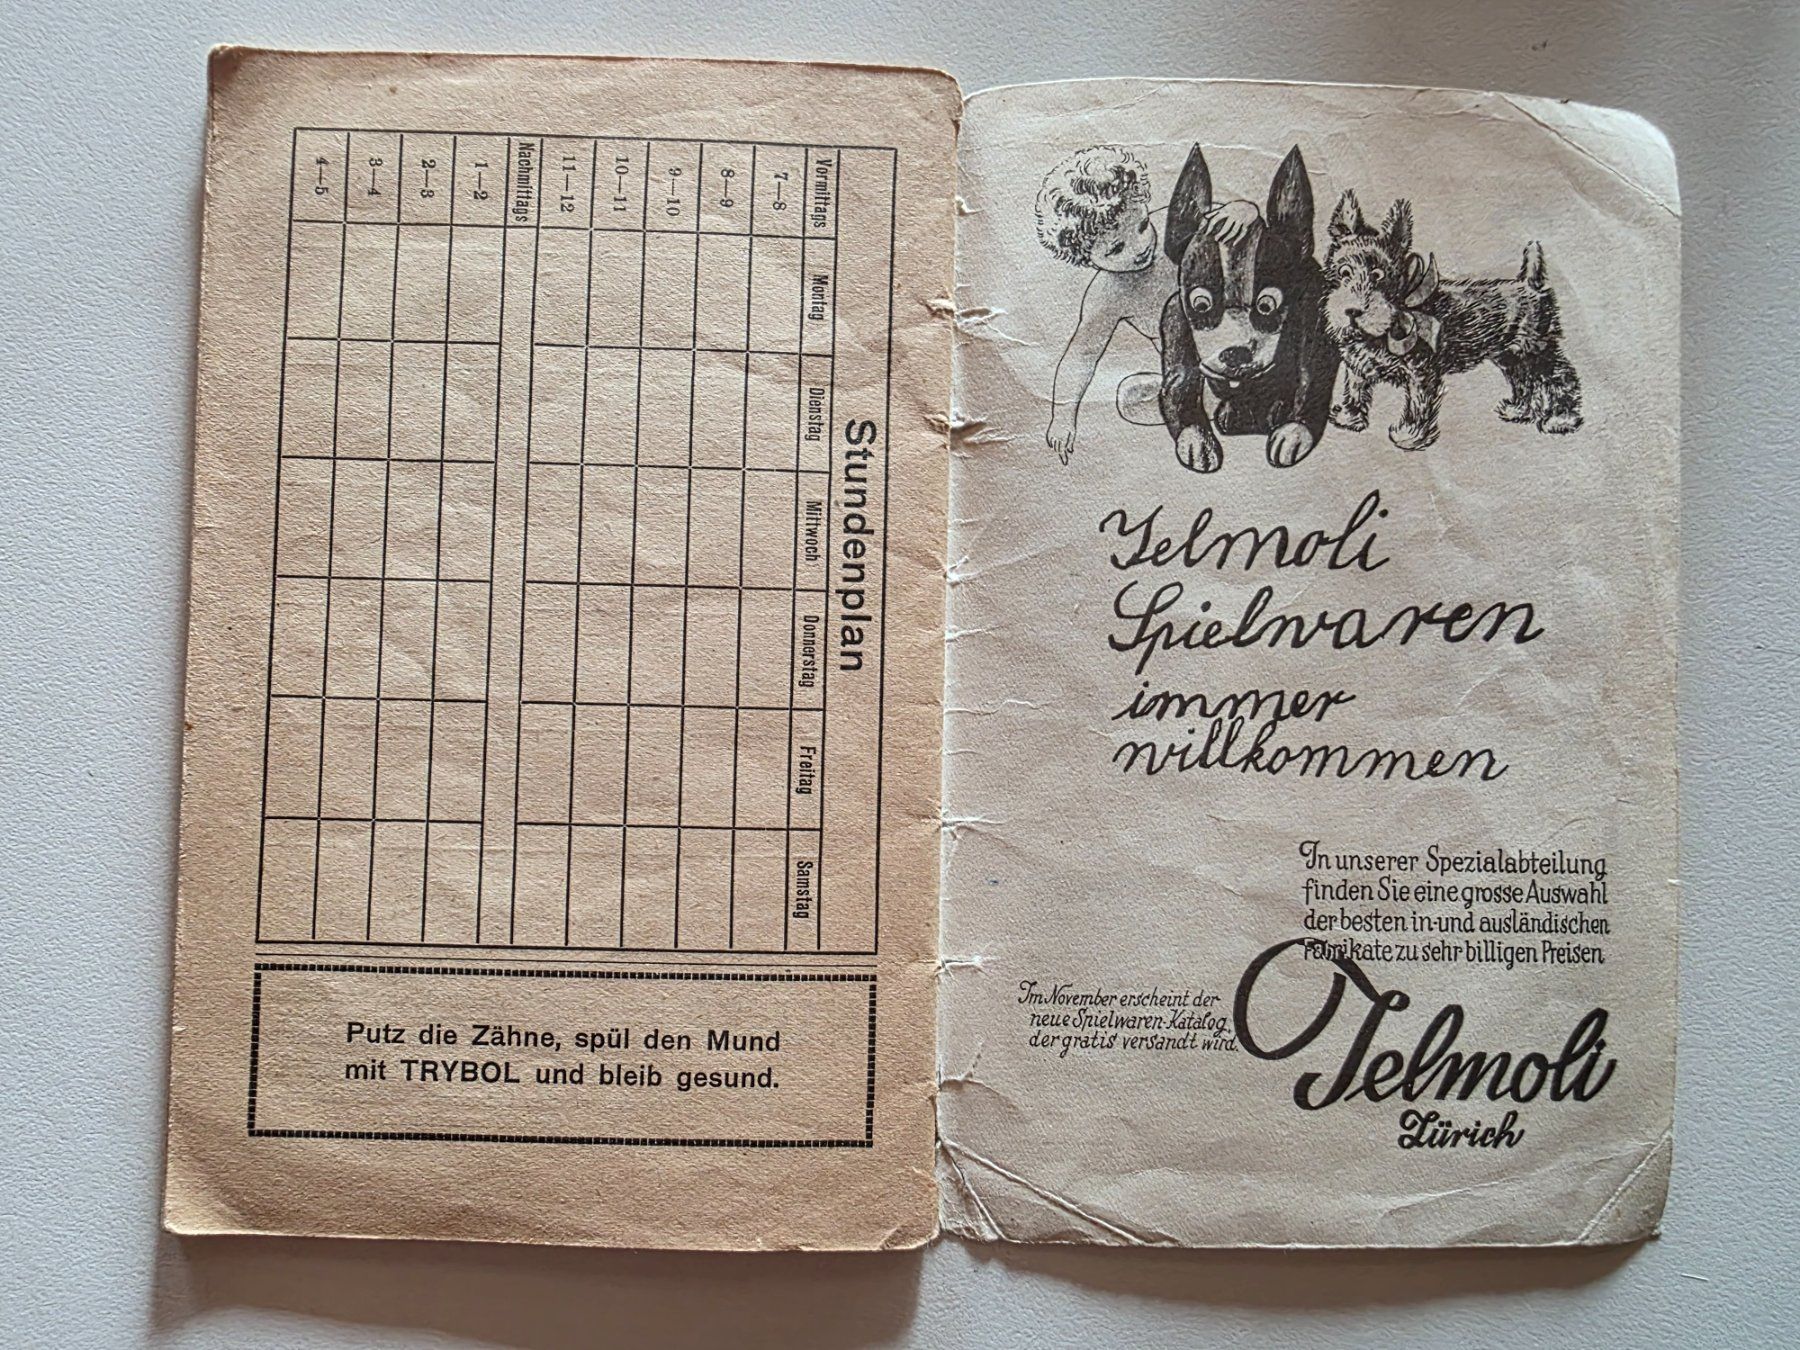 Stundenplan
Vormittags Montag Dienstag Mittwoch Donnerstag Freitag Samstag
7—8
8—9
9—10
10—11
11—12
Nachmittags
1—2
2—3
3—4
4—5
Putz die Zähne, spül den Mund
mit TRYBOL und bleib gesund.
Jelmoli
Spielwaren
immer
willkommen
In unserer Spezialabteilung
finden Sie eine grosse Auswahl
der besten in- und ausländischen
Fabrikate zu sehr billigen Preisen
Im November erscheint der
neue Spielwaren-Katalog,
der gratis versandt wird.
Jelmoli
Zürich